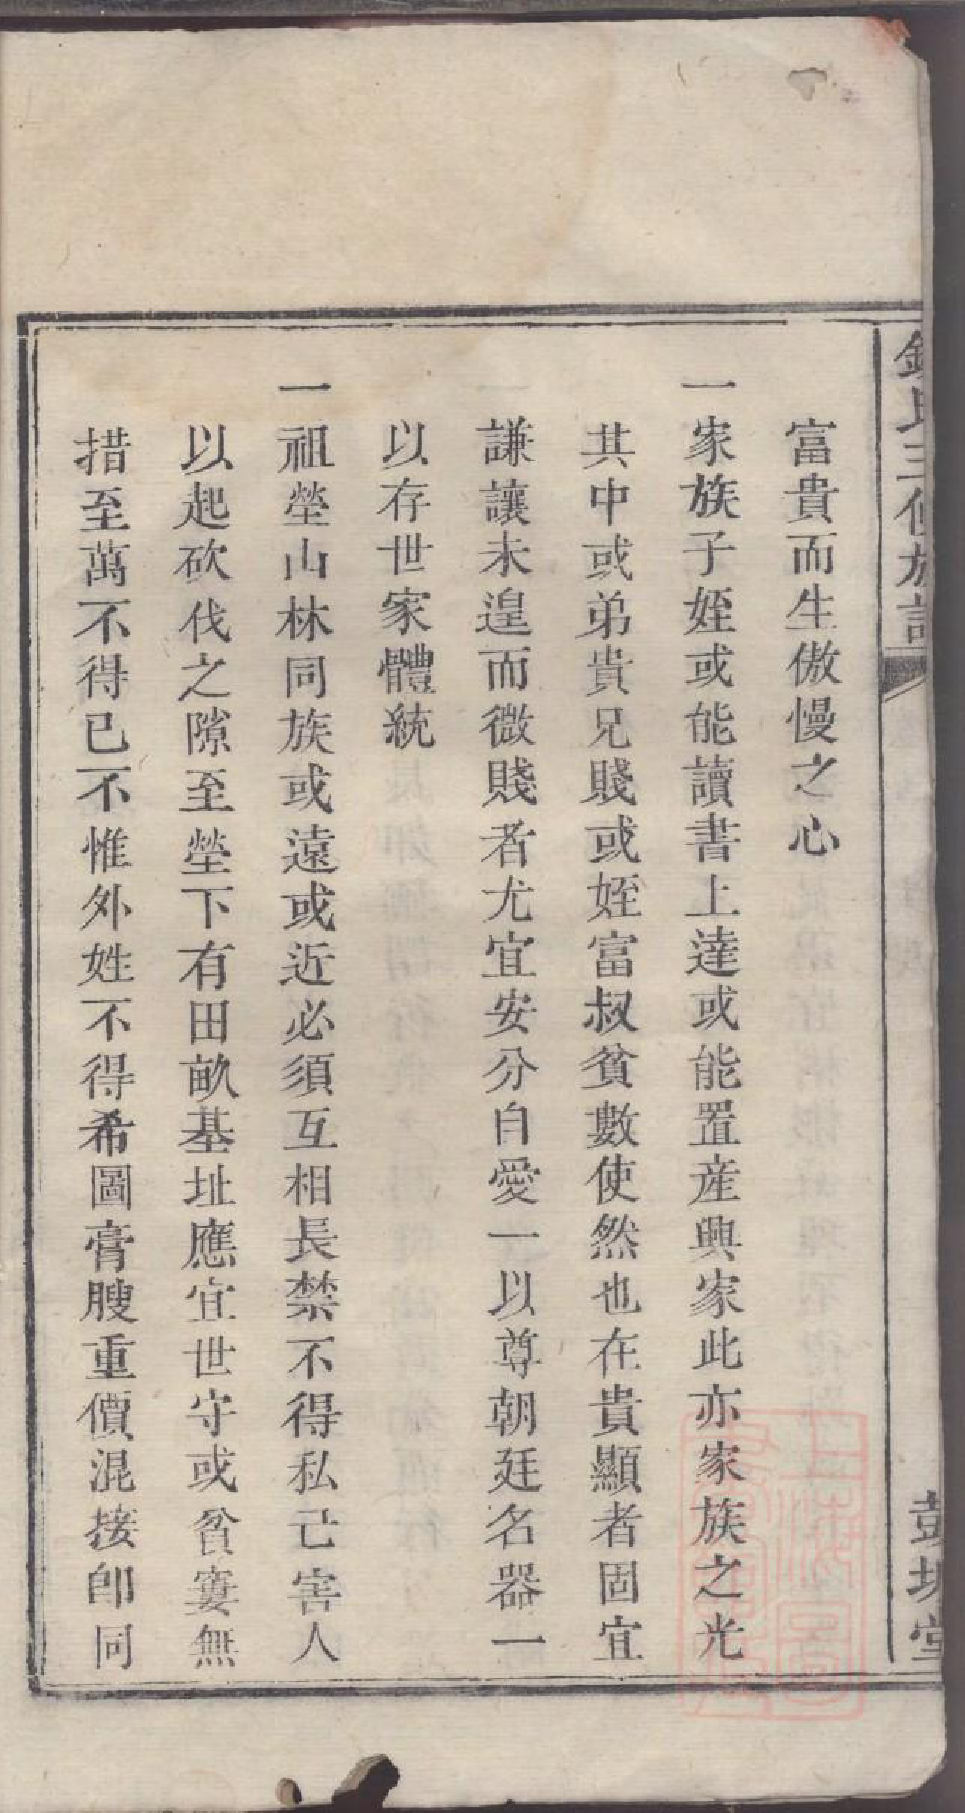 氏三修族譜
彭城堂
富貴而生傲慢之心
一家族子姪或能讀書上達或能置產興家此亦家族之光
其中或弟貴兄賤或姪富叔貧數使然也在貴顯者固宜
謙讓未遑而微賤者尤宜安分自愛一以尊朝廷名器一
以存世家體統
一祖塋山林同族或遠或近必須互相長禁不得私己害人
以起砍伐之隙至塋下有田畝基址應宜世守或貧窶無
措至萬不得已不惟外姓不得希圖膏腴重價混接卽同